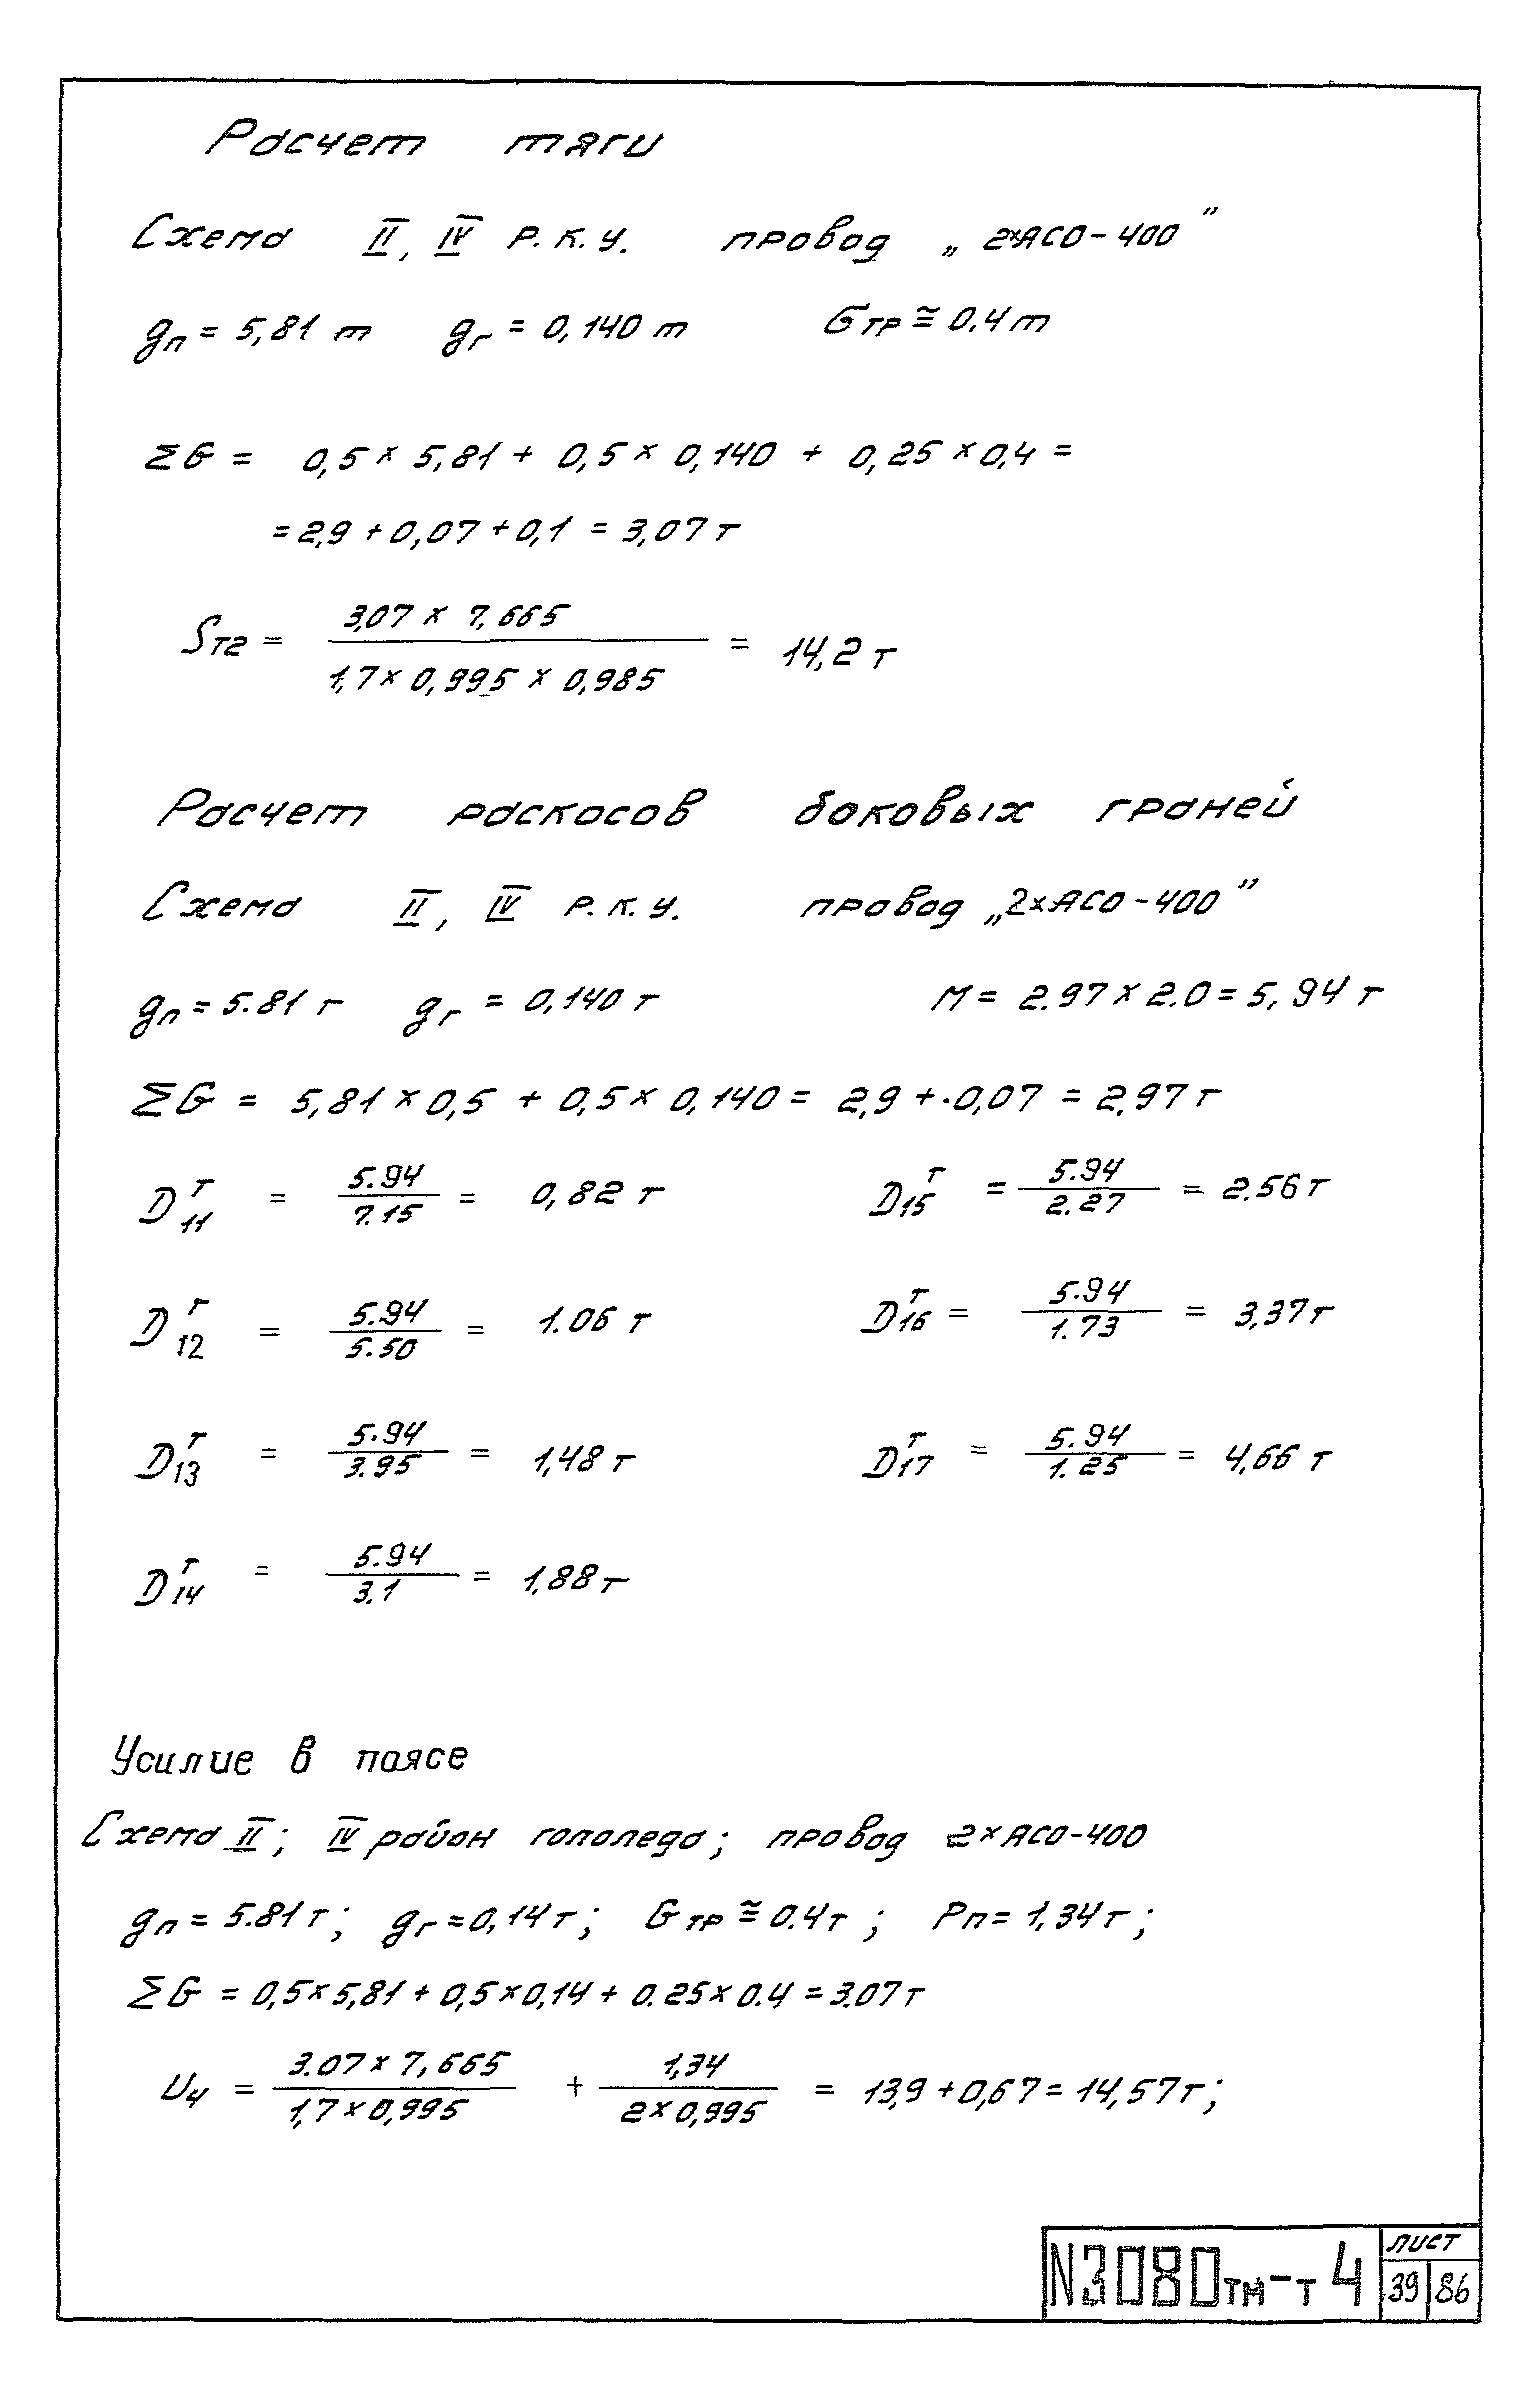 Расчет тяги
Схема II, IV р.к.у. провод „2×АСО-400"
gп = 5,81 т gг = 0,140 т Gтр ≅ 0.4 т
ΣG = 0,5 × 5,81 + 0,5 × 0,140 + 0,25 × 0,4 =
= 2,9 + 0,07 + 0,1 = 3,07 т
Sт2 = 3,07 × 7,665 / 1,7 × 0,995 × 0,985 = 14,2 т
Расчет раскосов боковых граней
Схема II, IV р.к.у. провод „2×АСО-400"
gп = 5.81 т gг = 0,140 т М = 2.97 × 2.0 = 5,94 т
ΣG = 5,81 × 0,5 + 0,5 × 0,140 = 2,9 + 0,07 = 2,97 т
D11^т = 5.94 / 7.15 = 0,82 т D15^т = 5.94 / 2.27 = 2.56 т
D12^т = 5.94 / 5.50 = 1.06 т D16^т = 5.94 / 1.73 = 3,37 т
D13^т = 5.94 / 3.95 = 1,48 т D17^т = 5.94 / 1.25 = 4,66 т
D14^т = 5.94 / 3.1 = 1,88 т
Усилие в поясе
Схема II; IV район гололеда; провод 2×АСО-400
gп = 5.81 т; gг = 0,14 т; Gтр ≅ 0.4 т; Рп = 1,34 т;
ΣG = 0,5×5,81 + 0,5×0,14 + 0.25×0.4 = 3.07 т
U4 = 3.07 × 7,665 / 1,7 × 0,995 + 1,34 / 2 × 0,995 = 13,9 + 0,67 = 14,57 т;
N3080тм-т4 лист
39 86